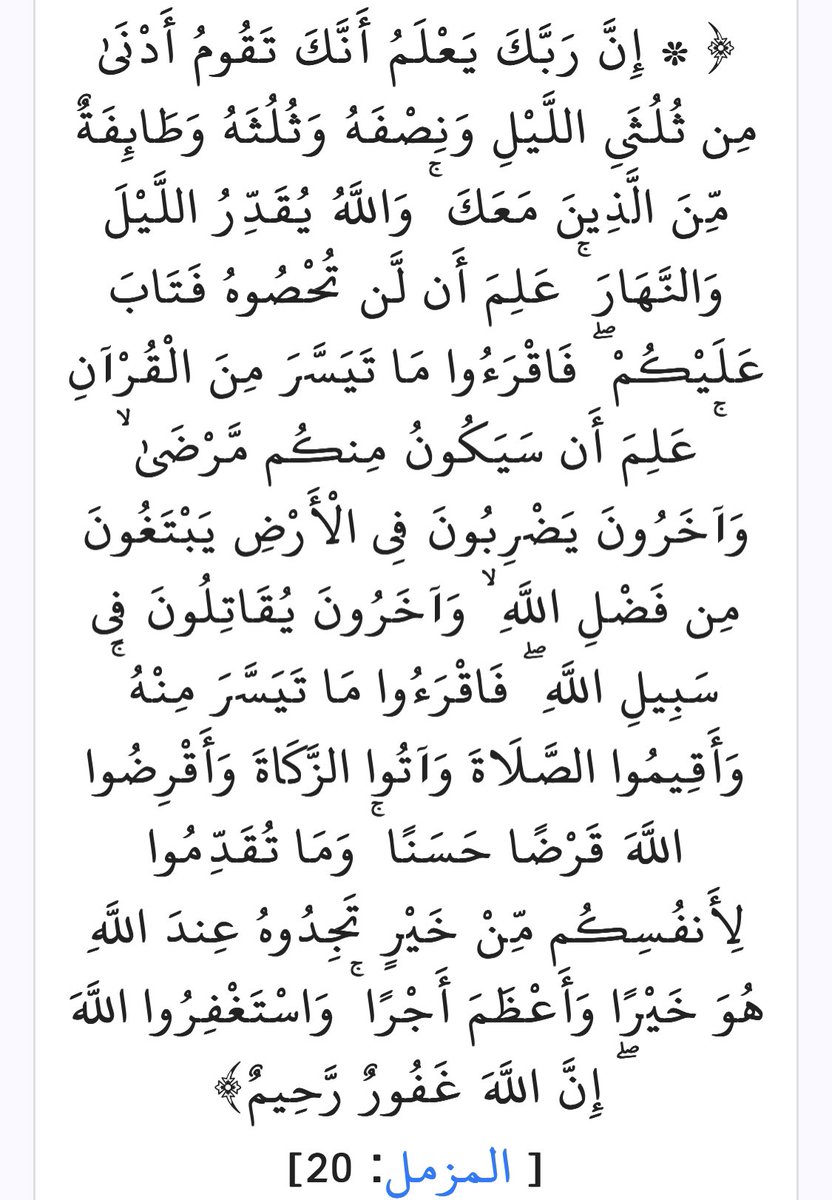 ﴿ ۞ إِنَّ رَبَّكَ يَعْلَمُ أَنَّكَ تَقُومُ أَدْنَىٰ
مِن ثُلُثَيِ اللَّيْلِ وَنِصْفَهُ وَثُلُثَهُ وَطَائِفَةٌ
مِّنَ الَّذِينَ مَعَكَ ۚ وَاللَّهُ يُقَدِّرُ اللَّيْلَ
وَالنَّهَارَ ۚ عَلِمَ أَن لَّن تُحْصُوهُ فَتَابَ
عَلَيْكُمْ ۖ فَاقْرَءُوا مَا تَيَسَّرَ مِنَ الْقُرْآنِ
ۚ عَلِمَ أَن سَيَكُونُ مِنكُم مَّرْضَىٰ ۙ
وَآخَرُونَ يَضْرِبُونَ فِي الْأَرْضِ يَبْتَغُونَ
مِن فَضْلِ اللَّهِ ۙ وَآخَرُونَ يُقَاتِلُونَ فِي
سَبِيلِ اللَّهِ ۖ فَاقْرَءُوا مَا تَيَسَّرَ مِنْهُ ۚ
وَأَقِيمُوا الصَّلَاةَ وَآتُوا الزَّكَاةَ وَأَقْرِضُوا
اللَّهَ قَرْضًا حَسَنًا ۚ وَمَا تُقَدِّمُوا
لِأَنفُسِكُم مِّنْ خَيْرٍ تَجِدُوهُ عِندَ اللَّهِ
هُوَ خَيْرًا وَأَعْظَمَ أَجْرًا ۚ وَاسْتَغْفِرُوا اللَّهَ
ۖ إِنَّ اللَّهَ غَفُورٌ رَّحِيمٌ﴾
[ المزمل: 20]